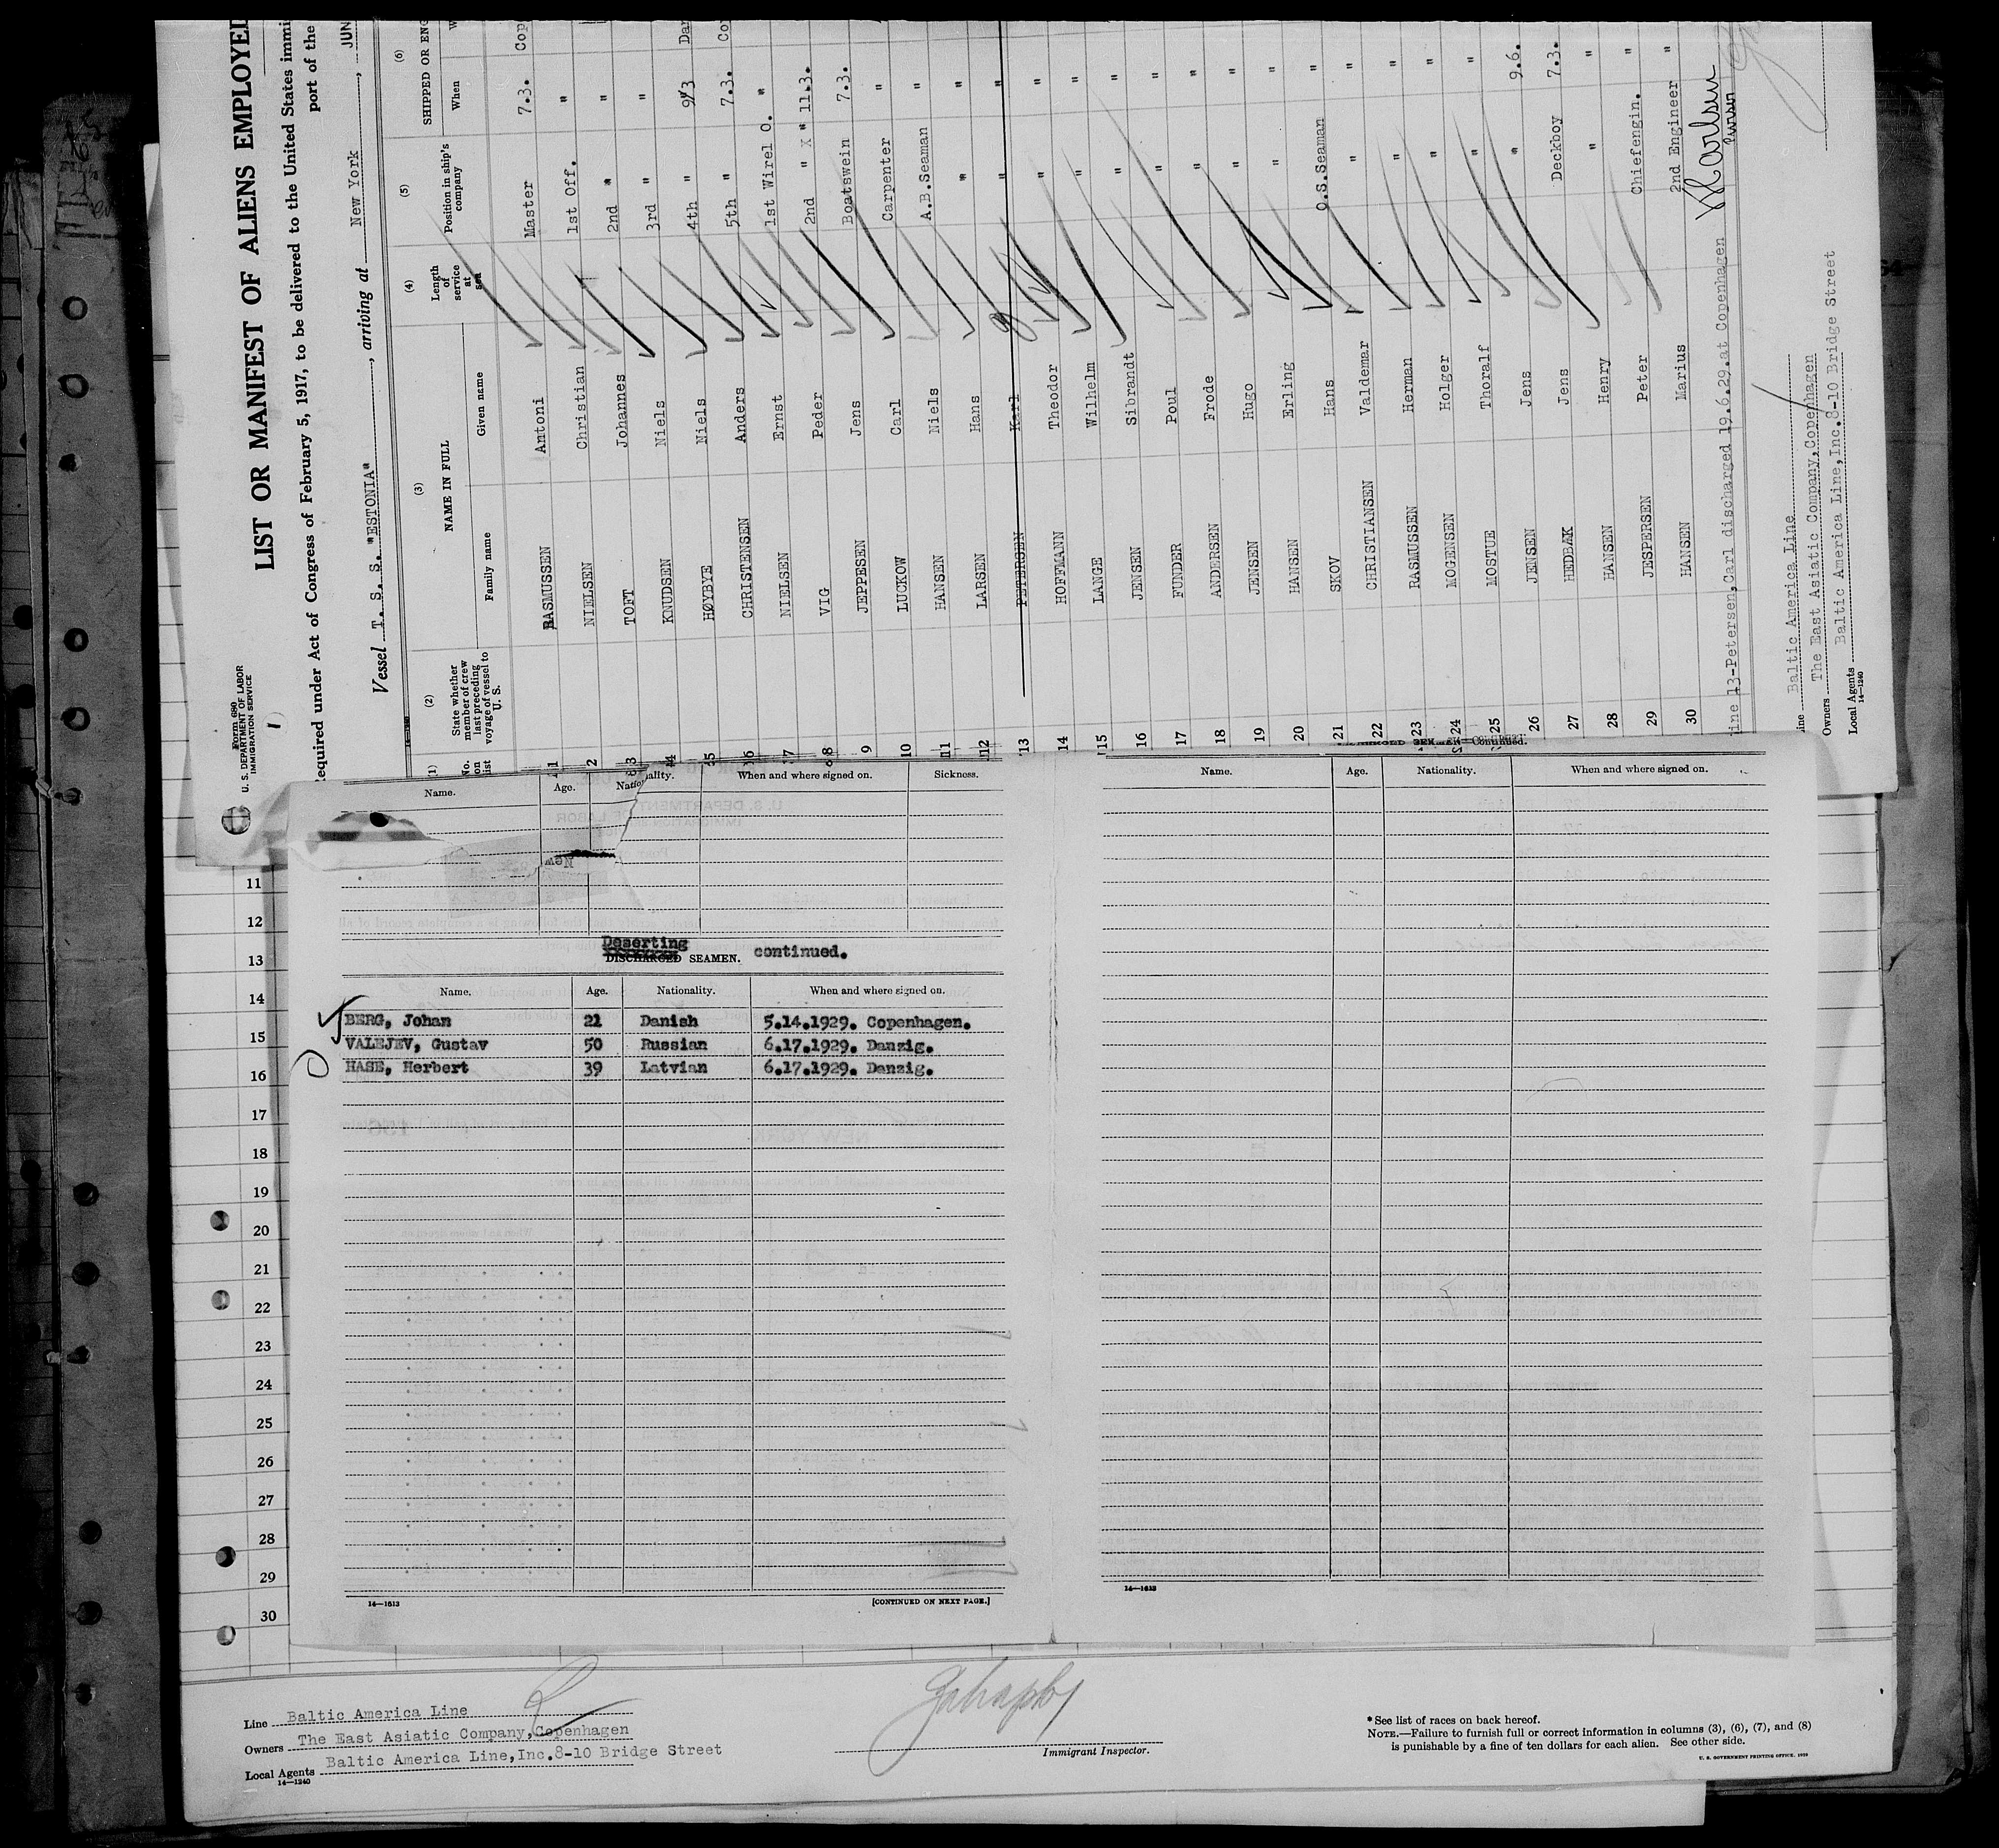 Form 680
U. S. DEPARTMENT OF LABOR
IMMIGRATION SERVICE
1
LIST OR MANIFEST OF ALIENS EMPLOYED
Required under Act of Congress of February 5, 1917, to be delivered to the United States immi
port of the
Vessel T. S. S. "ESTONIA", arriving at New York, JUN
(1) (2) (3) (4) (5) (6)
State whether member of crew on last preceding voyage of vessel to U. S.
NAME IN FULL
Family name Given name
Length of service at sea
Position in ship's company
SHIPPED OR ENG
When
1 RASMUSSEN Antoni Master 7.3. Cop
2 NIELSEN Christian 1st Off. "
3 TOFT Johannes 2nd " "
4 KNUDSEN Niels 3rd " "
5 HØYBYE Niels 4th " 9/3 Dan
6 CHRISTENSEN Anders 5th " 7.3. Co
7 NIELSEN Ernst 1st Wirel O. "
8 VIG Peder 2nd " X " 11.3.
9 JEPPESEN Jens Boatswein 7.3.
10 LUCKOW Carl Carpenter "
11 HANSEN Niels A.B.Seaman "
12 LARSEN Hans " "
13 PETERSEN Karl " "
14 HOFFMANN Theodor " "
15 LANGE Wilhelm " "
16 JENSEN Sibrandt " "
17 FUNDER Poul " "
18 ANDERSEN Frode " "
19 JENSEN Hugo " "
20 HANSEN Erling " "
21 SKOV Hans O.S.Seaman "
22 CHRISTIANSEN Valdemar " "
23 RASMUSSEN Herman " "
24 MOGENSEN Holger " "
25 MOSTUE Thoralf " "
26 JENSEN Jens " 9.6.
27 HEDBÆK Jens Deckboy 7.3.
28 HANSEN Henry " "
29 JESPERSEN Peter Chiefengin. "
30 HANSEN Marius 2nd Engineer "
ine 13-Petersen,Carl discharged 19.6.29.at Copenhagen
Carlsen
Purser
ine Baltic America Line
Owners The East Asiatic Company,Copenhagen
Local Agents Baltic America Line,Inc.8-10 Bridge Street
14—1240
Name. Age. Nationality. When and where signed on. Sickness.
Deserting
DISCHARGED SEAMEN. continued.
Name. Age. Nationality. When and where signed on.
BERG, Johan 21 Danish 5.14.1929. Copenhagen.
VALEJEV, Gustav 50 Russian 6.17.1929. Danzig.
HASE, Herbert 39 Latvian 6.17.1929. Danzig.
14—1613
[CONTINUED ON NEXT PAGE.]
SEAMEN—Continued.
Name. Age. Nationality. When and where signed on.
14—1613
11
12
13
14
15
16
17
18
19
20
21
22
23
24
25
26
27
28
29
30
Line Baltic America Line
Owners The East Asiatic Company,Copenhagen
Local Agents Baltic America Line,Inc.8-10 Bridge Street
14—1240
Immigrant Inspector.
* See list of races on back hereof.
NOTE.—Failure to furnish full or correct information in columns (3), (6), (7), and (8)
is punishable by a fine of ten dollars for each alien. See other side.
U. S. GOVERNMENT PRINTING OFFICE